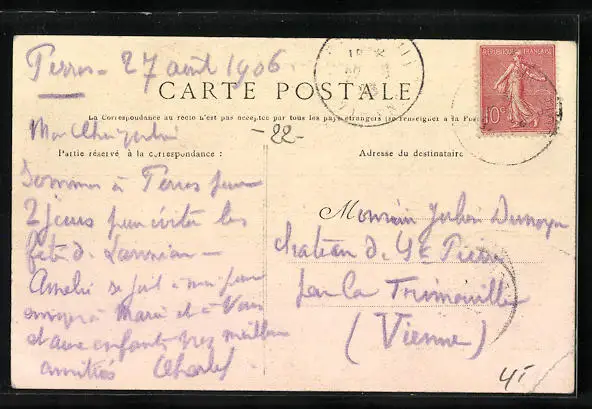 Perros - 27 août 1906
CARTE POSTALE
RÉPUBLIQUE FRANÇAISE
10c
La Correspondance au recto n'est pas acceptée par tous les pays étrangers (se renseigner à la Poste)
Mon Cher
-22-
Partie réservée à la correspondance :
Adresse du destinataire
Sommes à Perros pour
2 jours pour éviter les
fêtes de Lannion -
Amélie se joint à moi pour
envoyer à Marie et à Vous
et aux enfants nos meilleures
amitiés Charles
Monsieur Jules
Chateau de St Pierre
par La Trimouille
(Vienne)